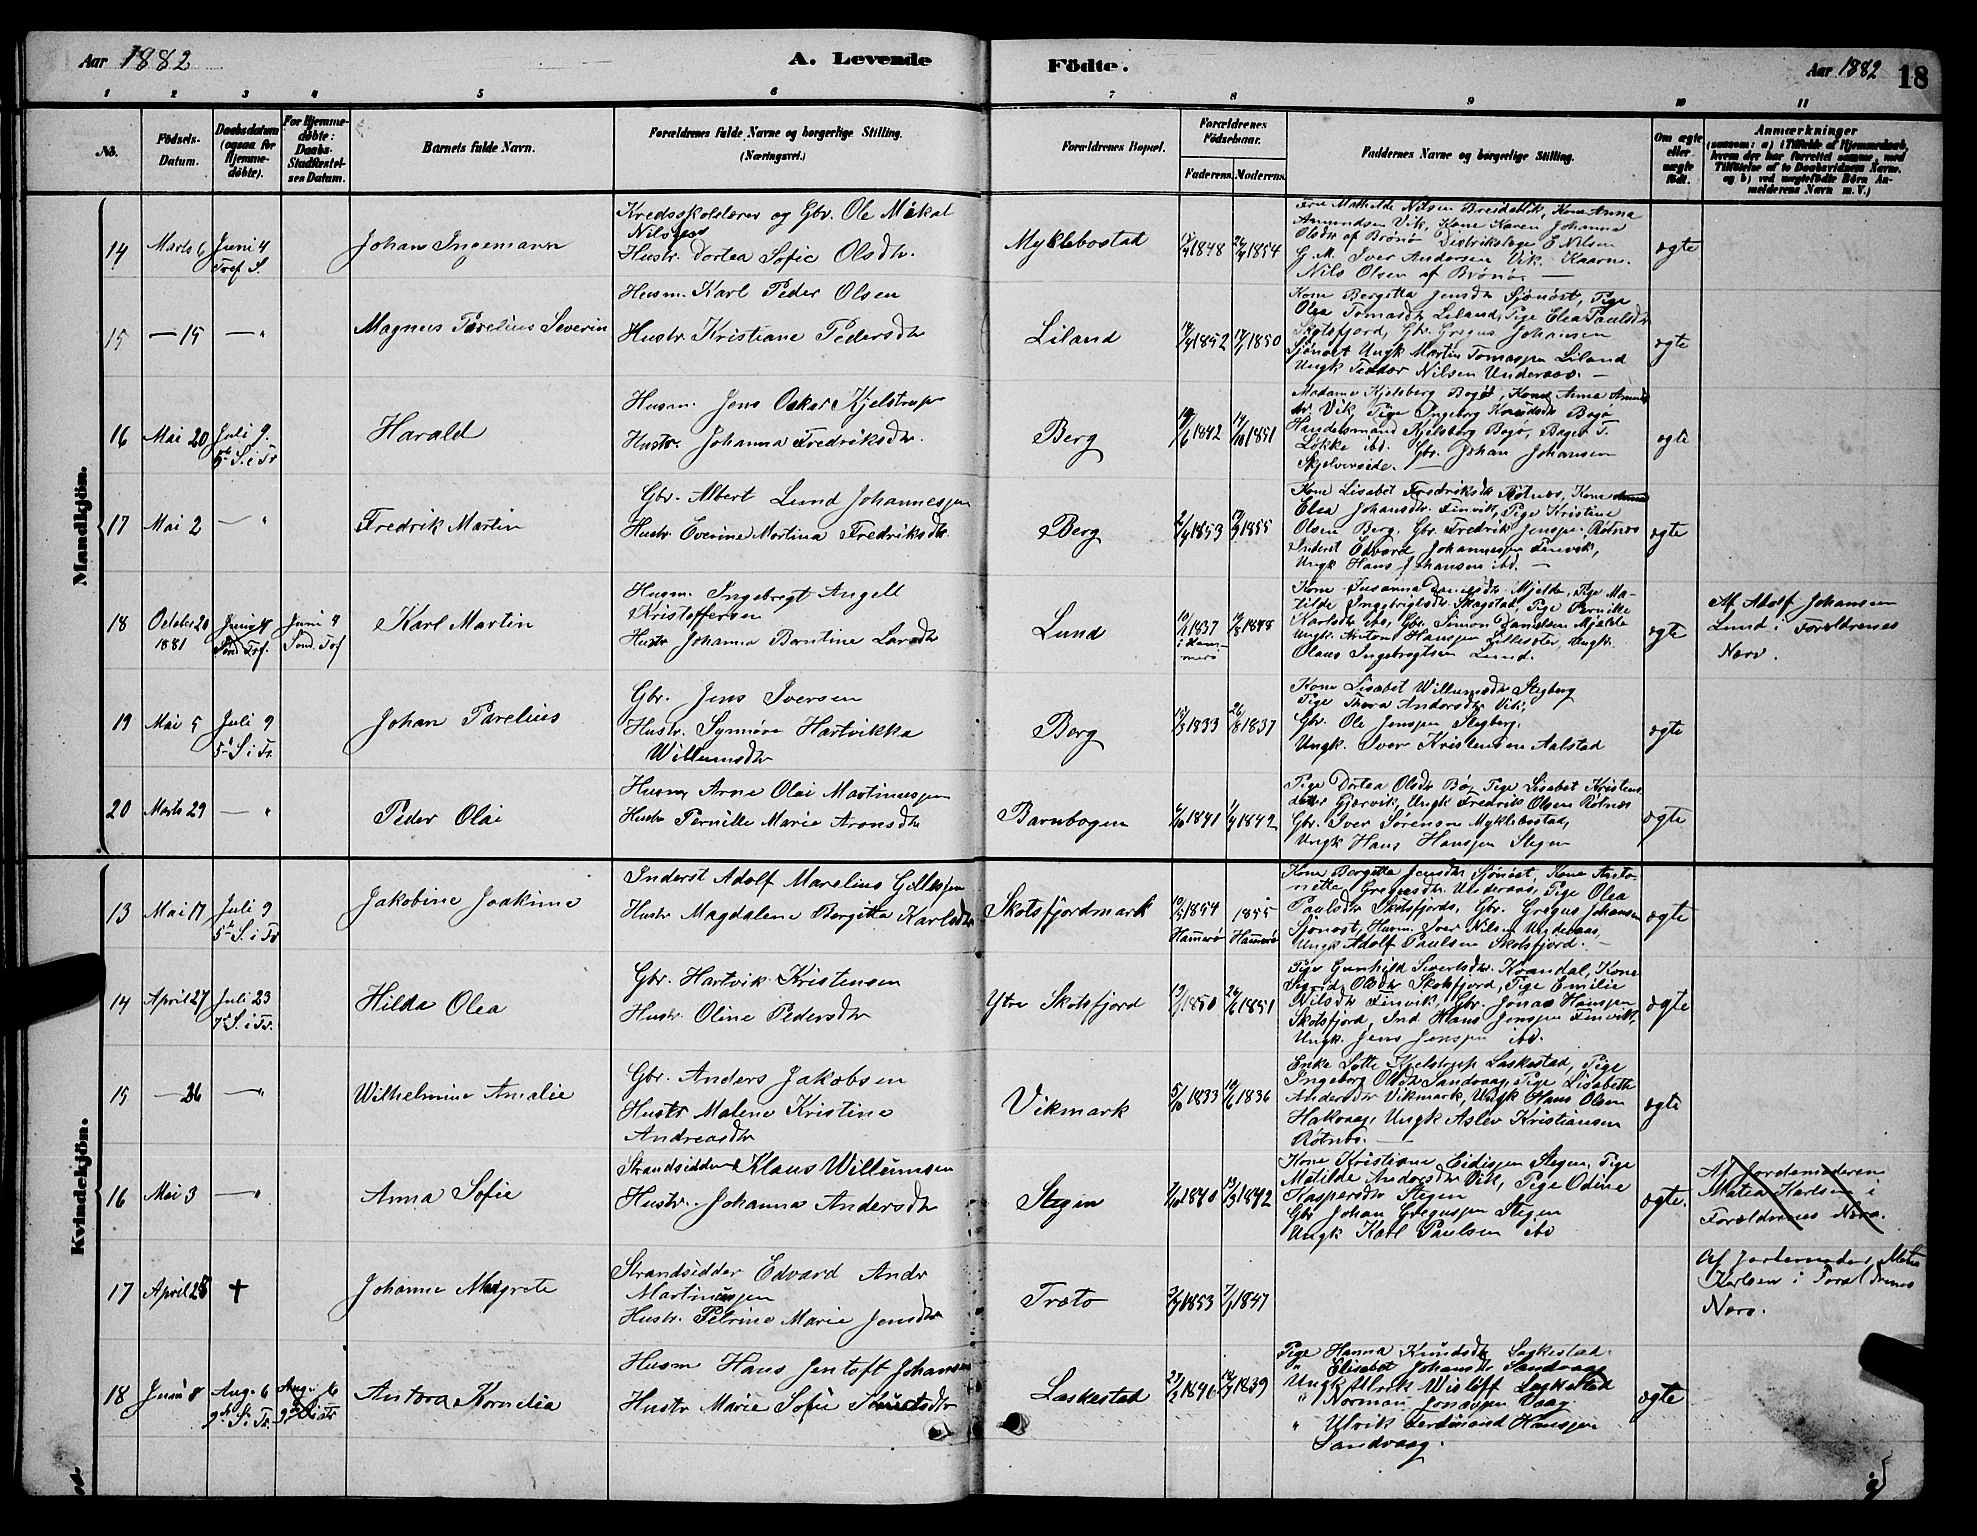 Aar 1882
A. Levende
Födte.
Aar 1882
18
1 2 3 4 5 6 7 8 9 10 11
No.
Födsels-
Datum.
Daabsdatum
(ogsaa for
Hjemme-
döbte).
For Hjemme-
döbte:
Daabs-
Stadfæstel-
sen Datum.
Barnets fulde Navn.
Forældrenes fulde Navne og borgerlige Stilling.
(Næringsvei.)
Forældrenes Bopæl.
Forældrenes
Födselsaar.
Faderens. Moderens.
Faddernes Navne og borgerlige Stilling.
Om ægte
eller
uægte
født.
Anmærkninger
(saasom: a) i Tilfælde af Hjemmedaab,
hvem der har forrettet samme, med
Tilföielse af to Daabsvidners Navne,
og b) ved uægtefödte Börn An-
melderens Navn m. V.)
Mandkjön.
14
Marts 6
Juni 4
Tref. S.
Johan Ingemann
Kredsskolelærer og Gbr. Ole Mikal
Nilssen
Hustr. Dortea Sofie Olsdtr.
Myklebostad
1848
1854
Frue Mathilde Nilsen Breidablik, Kone Anna
Amundsen Vik, Kone Karen Johanna
Olsdtr af Brönö Distriktslæge E Nilsen
G. M. Iver Andersen Vik.
Nils Olsen af Brönö. —
ægte
15
— 15
— "
Magnus Parelius Severin
Husm. Karl Peder Olsen
Hustr. Kristiane Pedersdtr
Liland
1852
1850
Kone Bergitta Jensdtr Sjönöst, Pige
Olea Tomasdtr Liland, Pige Elea Paulsdtr
Skotsfjord, Gbr. Gregus Johansen
Sjönöst Ungk Martin Tomassen Liland
Ungk Teodor Nilsen Underaas. —
ægte
16
Mai 20
Juli 9.
5te S. i Tr
Harald
Husm. Jens Oskar Kjelstrup
Hustr. Johanna Fredriksdtr.
Berg
1842
1851
Madame Kjelsberg Bogö, Kone Anna Amunds
dtr Vik Pige Ingeborg Knudsdtr Bogö
Handelsmand Kjelsberg Bogö, Bager T.
Løkke ibd. Gbr. Johan Johansen
Skjelverside. —
ægte
17
Mai 2
— "
Fredrik Martin
Gbr. Albert Lund Johannessen
Hustr Everine Martina Fredriksdtr.
Berg
1853
1855
Kone Lisabet Fredriksdtr Rötnes, Kone
Elea Johansdtr. Finvik, Pige Kristine
Olsen Berg. Gbr. Fredrik Jenssen Rötnes
Inderst Edvard Johannessen Finvik,
Ungk Hans Johansen ibd. —
ægte
18
October 20
1881
Juni 4
Sönd. Tref.
Juni 4
Sönd. Tref
Karl Martin
Husm. Ingebrigt Angell
Kristoffersen
Hustr Johanna Berntine Larsdtr
Lund
1837
1848
Kone Susanna Danielsdtr. Mjelde, Pige Ma-
tilde Ingebrigtsdtr Skagstad, Pige Pernille
Karlsdtr ibd, Gbr. Simon Danielsen Mjelde
Ungk. Anton Hanssen Lilleseter, Ungk.
Olaus Ingebrigtsen Lund.
ægte
Af Adolf Johansen
Lund i Forældrenes
Nærv.
19
Mai 5
Juli 9
5te S. i Tr.
Johan Parelius
Gbr. Jens Iversen
Hustr. Synnöve Hartvikka
Willumsdtr
Berg
1833
1837
Kone Lisabet Willumsdtr Stegberg
Pige Thora Andersdtr Vik,
Gbr. Ole Jenssen Stegberg.
Ungk. Iver Kristensen Aalstad
ægte
20
Marts 29
— "
Peder Olai
Husm Arne Olai Martinussen
Hustr Pernille Marie Aronsdtr
Barnbogen
1841
1842
Pige Dortea Olsdtr Bö, Pige Lisabet Kristens
datter Gjærvik, Ungk Fredrik Olsen Rötnes
Gbr. Iver Sörensen Myklebostad,
Ungk Hans Hanssen Stegen
ægte
Kvindekjön.
13
Mai 17
Juli 9
5te S. i Tr
Jakobine Joakime
Inderst Adolf Marelius Gillessen
Hustr Magdalene Bergitta Karlsdtr
Skotsfjordmark
1854
Hamerø
1855
Hamerø
Kone Bergitta Jensdtr Sjönöst, Kone Anto-
nette Gregusdtr. Underaas, Pige Olea
Paulsdtr Skotsfjord, Gbr. Gregus Johansen
Sjönöst, Husm. Iver Nilsen Underaas,
Ungk Adolf Paulsen Skotsfjord. —
ægte
14
April 27
Juli 23
7de S. i Tr.
Hilda Olea
Gbr. Hartvik Kristensen
Hustr. Oline Pedersdtr
Ytre Skotsfjord
1850
1851
Pige Gunhild Sivertsdtr. Kvandal, Kone
Sigrid Olsdtr Skotsfjord, Pige Emilie
Nilsdtr Finvik, Gbr. Jonas Hanssen
Skotsfjord, Ind. Hans Jenssen Finvik,
Ungk. Jens Jenssen ibd.
ægte
15
— 26
— "
Wilhelmine Amalie
Gbr. Anders Jakobsen
Hustr Malene Kristine
Andreasdtr
Vikmark
1833
1836
Enke Lotte Kjelstrup Laskestad, Pige
Ingeborg Olsdtr Sandvaag, Pige Lisabeth
Andersdtr Vikmark, Ungk Hans Olsen
Halvaag, Ungk Aslev Kristiansen
Rötnes. —
ægte
16
Mai 3
— "
Anna Sofie
Strandsidder Klaus Willumsen
Hustr. Johanna Andersdtr
Stegen
1840
1842
Kone Kristiane Eidissen Stegen, Pige
Matilde Andersdtr Vik, Pige Odine
Kaspersdtr Stegen
Gbr Johan Gregussen Stegen
Ungk Karl Paulsen ibd
ægte.
Af Jordemoderen
Matea Karlsen i
Forældrenes Nærv.
17
April 28
†
Johanne Margrete
Strandsidder Edvard Andr
Martinussen
Hustr. Petrine Marie Jensdtr
Træto
1853
1847
Af Jordemoder Matea
Karlsen i Forældrenes
Nærv.
18
Juni 8
Aug. 6
9de S. i Tr.
Aug. 6
9de S. i Tr
Antora Kornelia
Husm Hans Jentoft Johansen
Hustr Marie Sofie Knudsdtr
Laskestad
1846
1839
Pige Hanna Knudsdtr Laskestad
" Elisabet Johansdtr Sandvaag
Ungk Ulrik Wisløff Laskestad
" Norman Jonassen Vaag
" Ulrik Ferdinand Hanssen
Sandvaag.
ægte